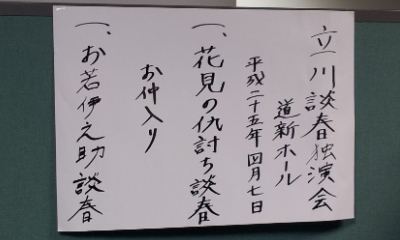 立川談春独演会
道新ホール
平成二十五年四月七日
一、花見の仇討ち談春
お仲入り
一、お若伊之助談春